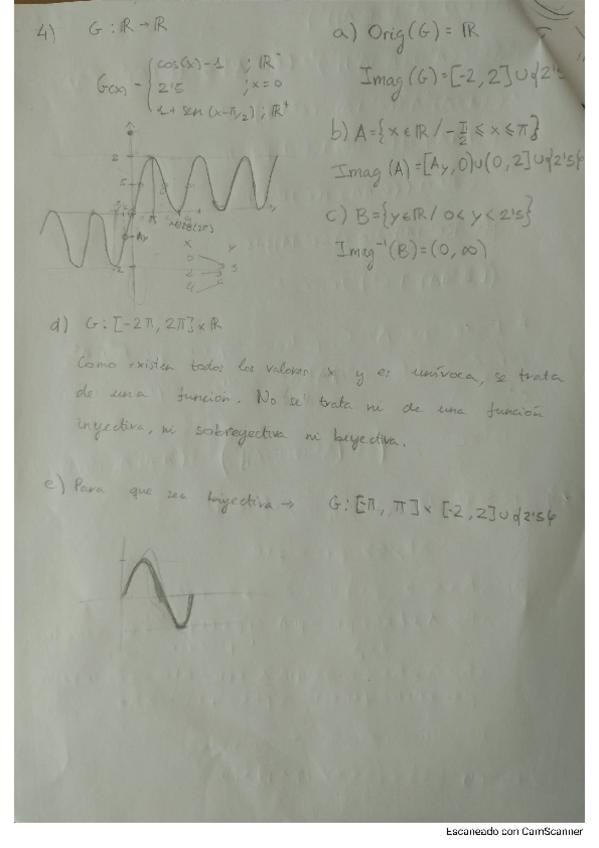 4) G : ℝ → ℝ
G(x) = { cos(x) - 1 ; ℝ⁻
2'5 ; x = 0
1 + sen (x - π/2) ; ℝ⁺
a) Orig(G) = ℝ
Imag(G) = [-2, 2] ∪ {2'5
b) A = {x ∈ ℝ / -π/2 ≤ x ≤ π}
Imag (A) = [Ay, 0) ∪ (0, 2] ∪ {2'5}
c) B = {y ∈ ℝ / 0 < y < 2'5}
Imag⁻¹(B) = (0, ∞)
2
π
Ay
-2
x y
0
2 3
4
d) G : [-2π, 2π] × ℝ
Como existen todos los valores x y es unívoca, se trata
de una función. No se trata ni de una función
inyectiva, ni sobreyectiva ni biyectiva.
e) Para que sea biyectiva → G : [-π, π] × [-2, 2] ∪ {2'5}
Escaneado con CamScanner